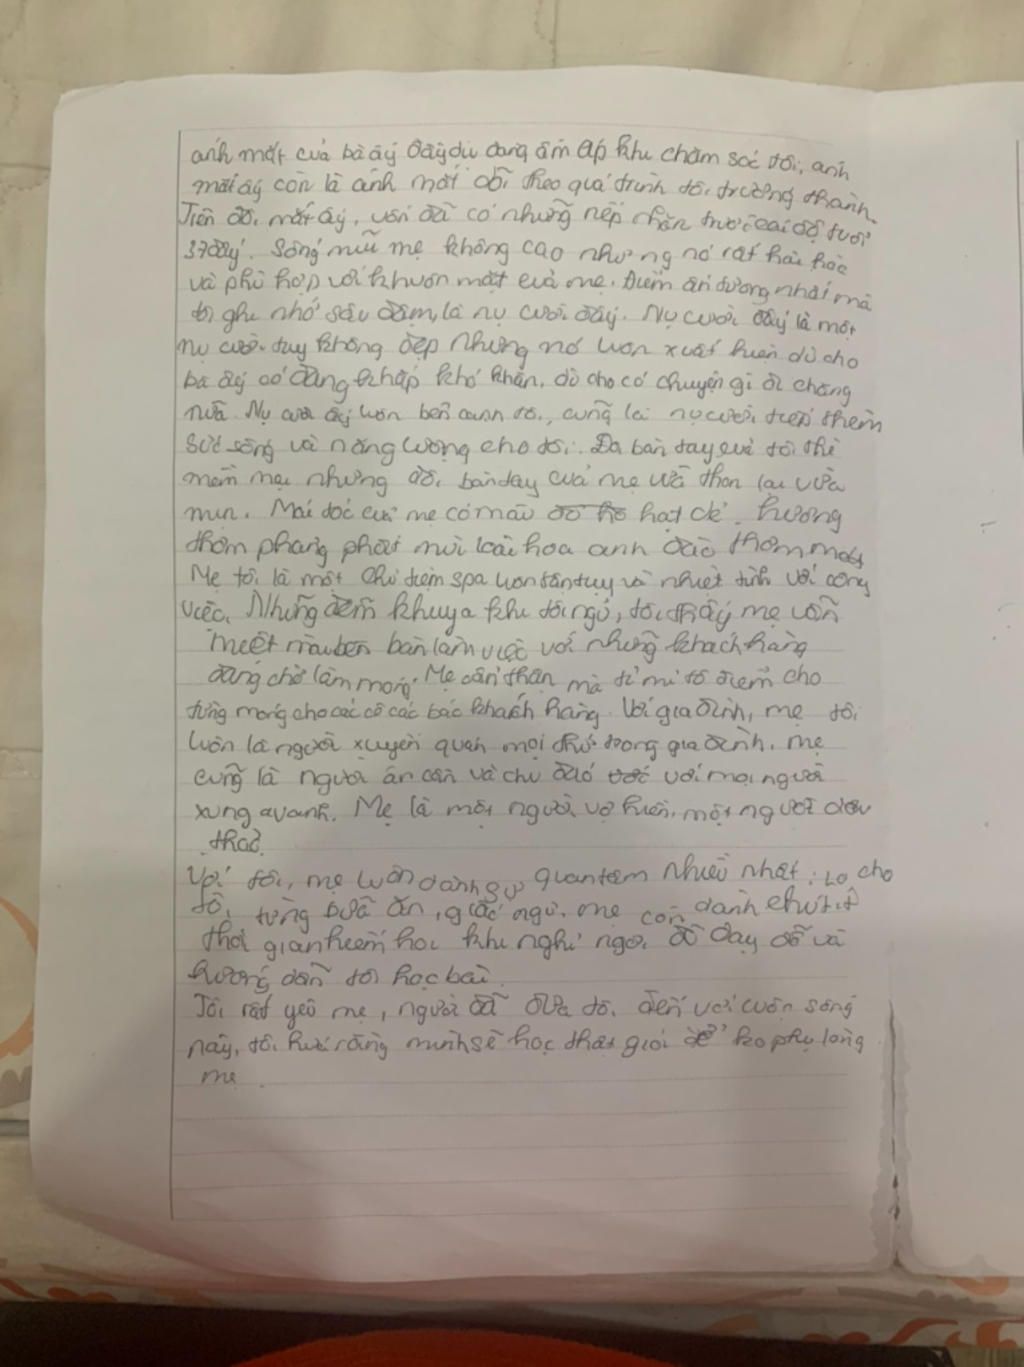 ánh mắt của bà ấy đầy dịu dàng ấm áp khi chăm sóc tôi, ánh
mắt ấy còn là ánh mắt dõi theo quá trình tôi trưởng thành.
Trên đôi mắt ấy, vẫn đã có những nếp nhăn trước cái độ tuổi
37 đấy. Sống mũi mẹ không cao nhưng nó rất hài hòa
và phù hợp với khuôn mặt của mẹ. Điểm ấn tượng nhất mà
tôi ghi nhớ sâu đậm, là nụ cười đấy. Nụ cười đấy là một
nụ cười tuy không đẹp nhưng nó luôn xuất hiện dù cho
bà ấy có đang khó khăn, dù cho có chuyện gì đi chăng
nữa. Nụ cười ấy luôn bên cạnh tôi, cũng là nụ cười tiếp thêm
sức sống và năng lượng cho tôi. Đa bàn tay của tôi thì
mềm mại nhưng đôi bàn tay của mẹ vừa thon lại vừa
mịn. Mái tóc của mẹ có màu hạt dẻ, hương
thơm phang phất mùi loài hoa anh đào thơm
Mẹ tôi là một chủ tiệm spa luôn tận tụy và nhiệt tình với công
việc. Những đêm khuya khi tôi ngủ, tôi thấy mẹ vẫn
miệt mài bên bàn làm việc với những khách hàng
đang chờ làm móng. Mẹ cẩn thận mà tỉ mỉ tô điểm cho
từng móng cho các cô các bác khách hàng. Với gia đình, mẹ tôi
luôn là người xuyên quan mọi thứ trong gia đình. mẹ
cũng là người ân cần và chu đáo với mọi người
xung quanh. Mẹ là một người vợ hiền, một người dâu
thảo.
Với tôi, mẹ luôn dành sự quan tâm nhiều nhất. Lo cho
tôi từng bữa ăn, giấc ngủ. mẹ còn dành chút ít
thời gian hiếm hoi khi nghỉ ngơi để dạy dỗ và
hướng dẫn tôi học bài.
Tôi rất yêu mẹ, người đã đưa tôi đến với cuộc sống
này, tôi hứa rằng mình sẽ học thật giỏi để ko phụ lòng
mẹ.